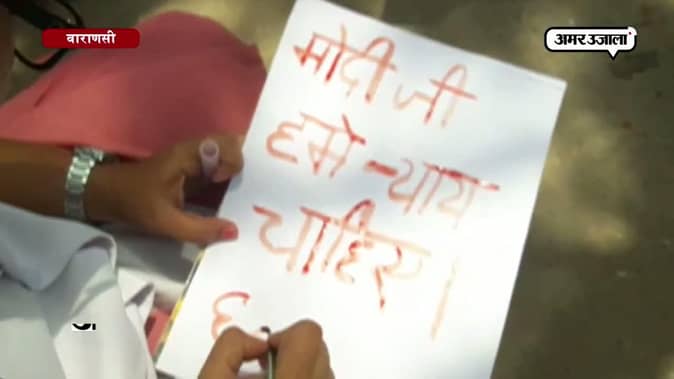 वाराणसी
अमर उजाला
मोदी जी
हमे न्याय
चाहिए।